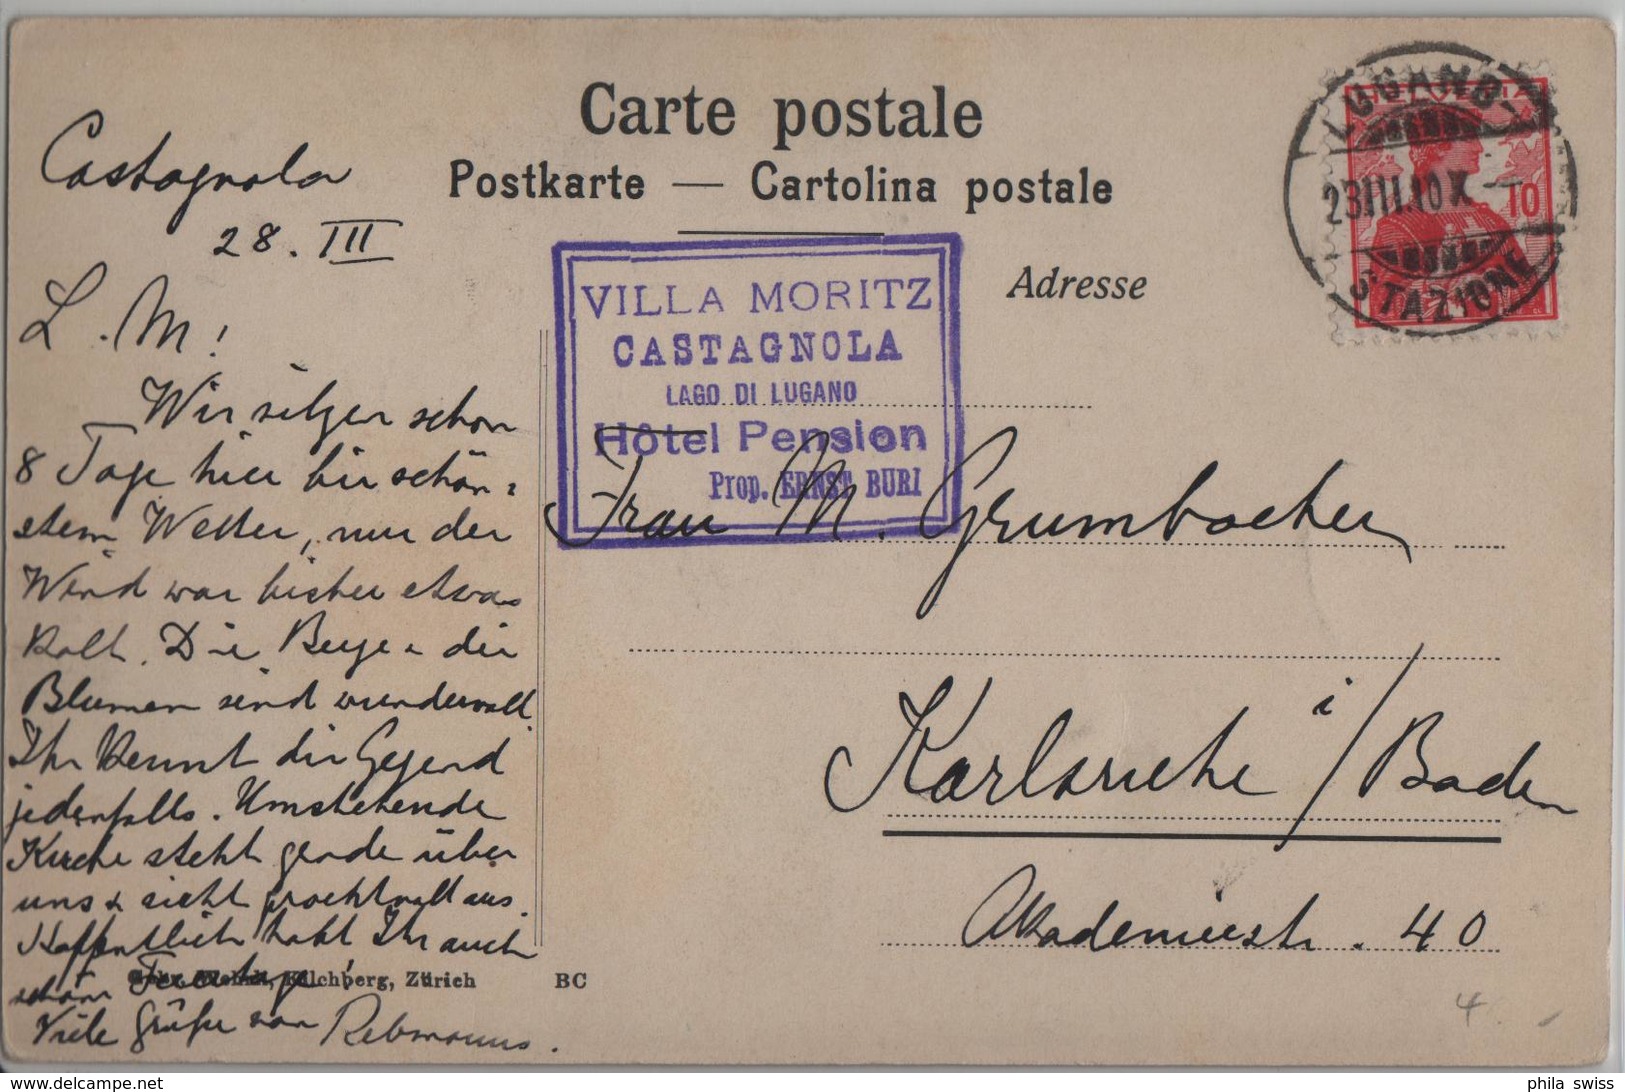 Carte postale
Postkarte — Cartolina postale
Adresse
LUGANO
HELVETIA
23.III.10 X
10
STAZIONE
VILLA MORITZ
CASTAGNOLA
LAGO DI LUGANO
Hôtel Pension
Prop. ERNST BURI
Castagnola
28. III
L. M!
Wir sitzen schon
8 Tage hier bei schön-
stem Wetter, nur der
Wind war bisher etwas
kalt. Die Berge & die
Blumen sind wundervoll.
Ihr kennt die Gegend
jedenfalls. Umstehende
Kirche steht gerade über
uns & sieht prachtvoll aus.
Hoffentlich habt Ihr auch
schöne Festtage!
Viele Grüße von Rebmanns.
Frau M. Grumbacher
Karlsruhe i/Baden
Akademiestr. 40
Kilchberg, Zürich
BC
4.
phila swiss